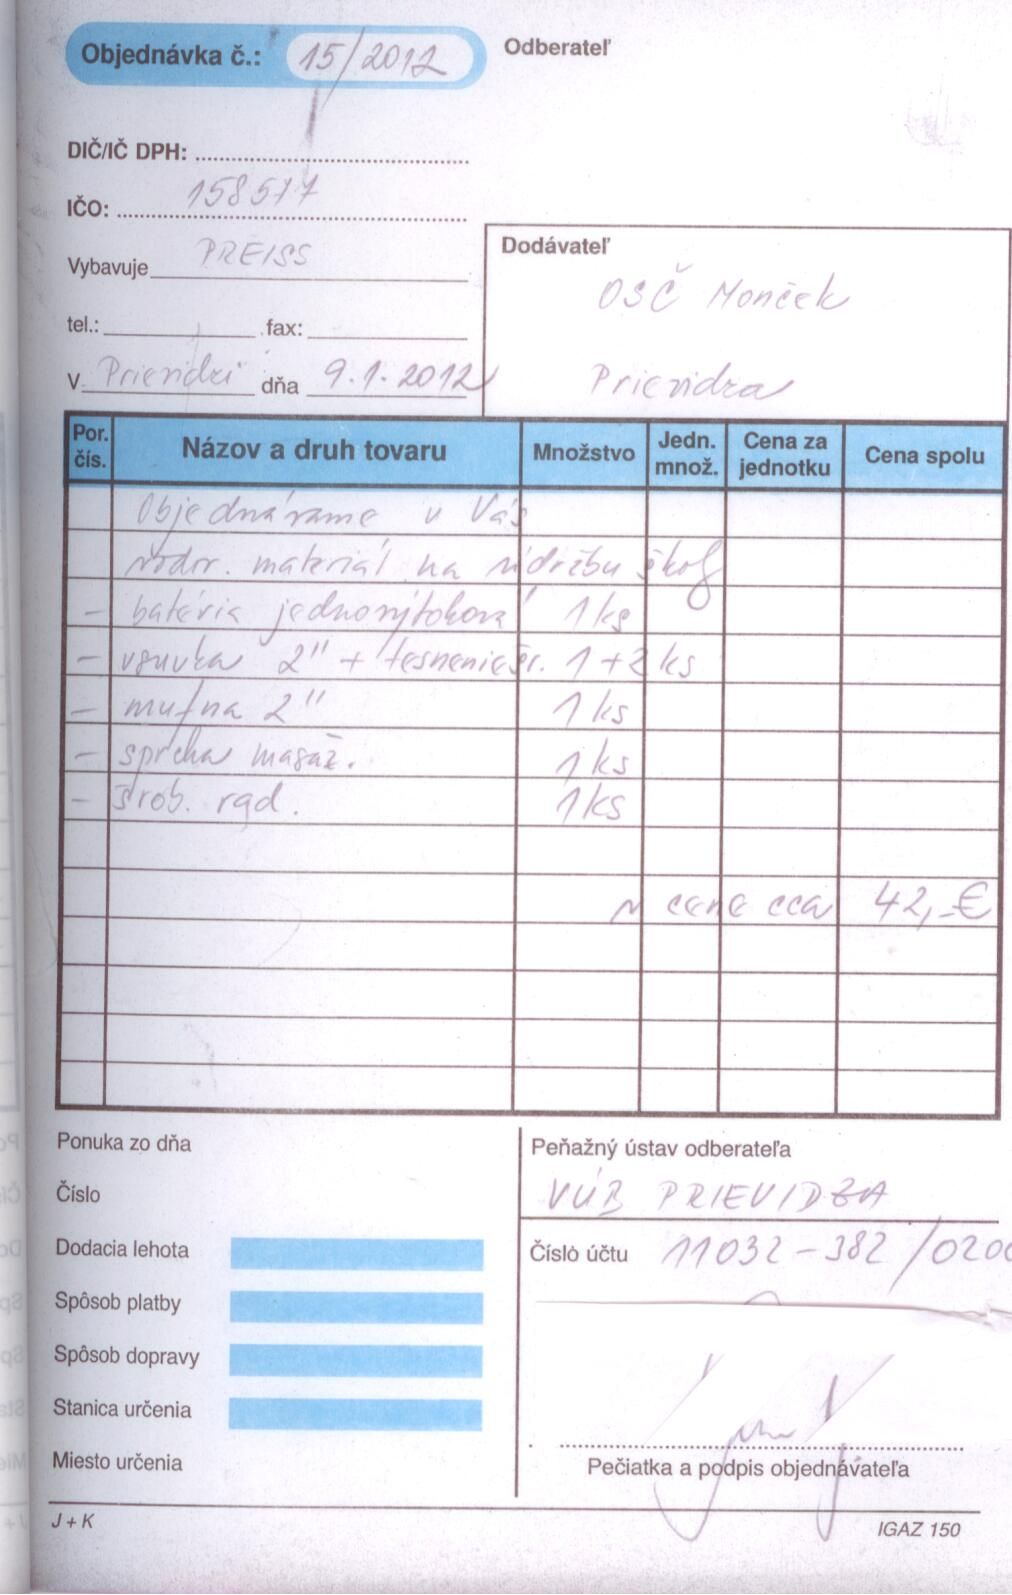 Objednávka č.: 15/2012
Odberateľ
DIČ/IČ DPH:
IČO: 158577
Vybavuje PREISS
tel.: fax:
V Prievidzi dňa 9.1.2012
Dodávateľ
OSČ Monček
Prievidza
Por. čís. Názov a druh tovaru Množstvo Jedn. množ. Cena za jednotku Cena spolu
Objednávame u Vás
vodov. materiál na údržbu školy
- batéria jednovýtoková 1 ks
- vsuvka 2" + tesnenie šr. 1+2 ks
- mufna 2" 1 ks
- sprcha masáž. 1 ks
- šrob. rad. 1 ks
v cene cca 42,-€
Ponuka zo dňa
Číslo
Dodacia lehota
Spôsob platby
Spôsob dopravy
Stanica určenia
Miesto určenia
Peňažný ústav odberateľa
VÚB PRIEVIDZA
Číslo účtu 11032-382/0200
Pečiatka a podpis objednávateľa
J + K
IGAZ 150